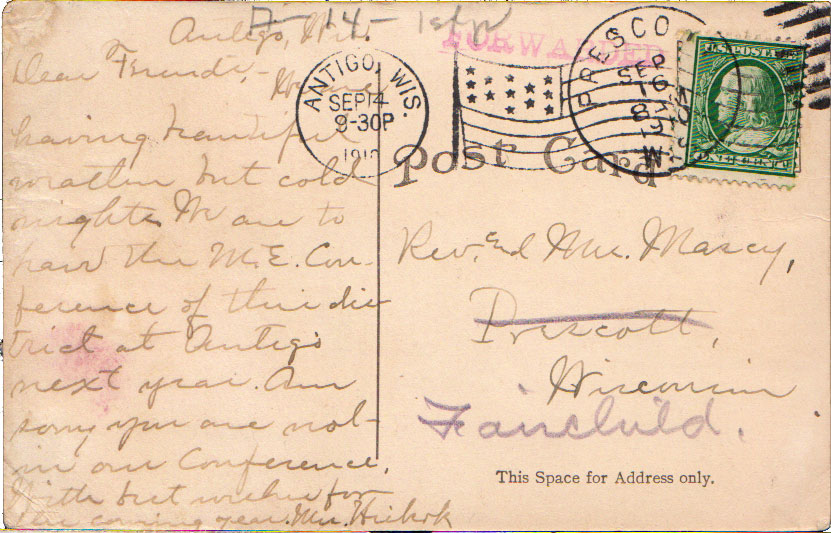 7-14-
Antigo, Wis.
FORWARDED
Dear Friends,-
We are
having beautiful
weather but cold
nights. We are to
have the M.E. Con-
ference of this dis-
trict at Antigo
next year. Am
sorry you are not
in our Conference.
With best wishes for
the coming year. Mrs.
ANTIGO, WIS.
SEP 14
9-30P
1910
PRESCO
SEP
16
8
W
U.S. POSTAGE
ONE CENT
Post Card
Rev. and Mrs. Massey,
Prescott,
Wisconsin
Fairchild.
This Space for Address only.